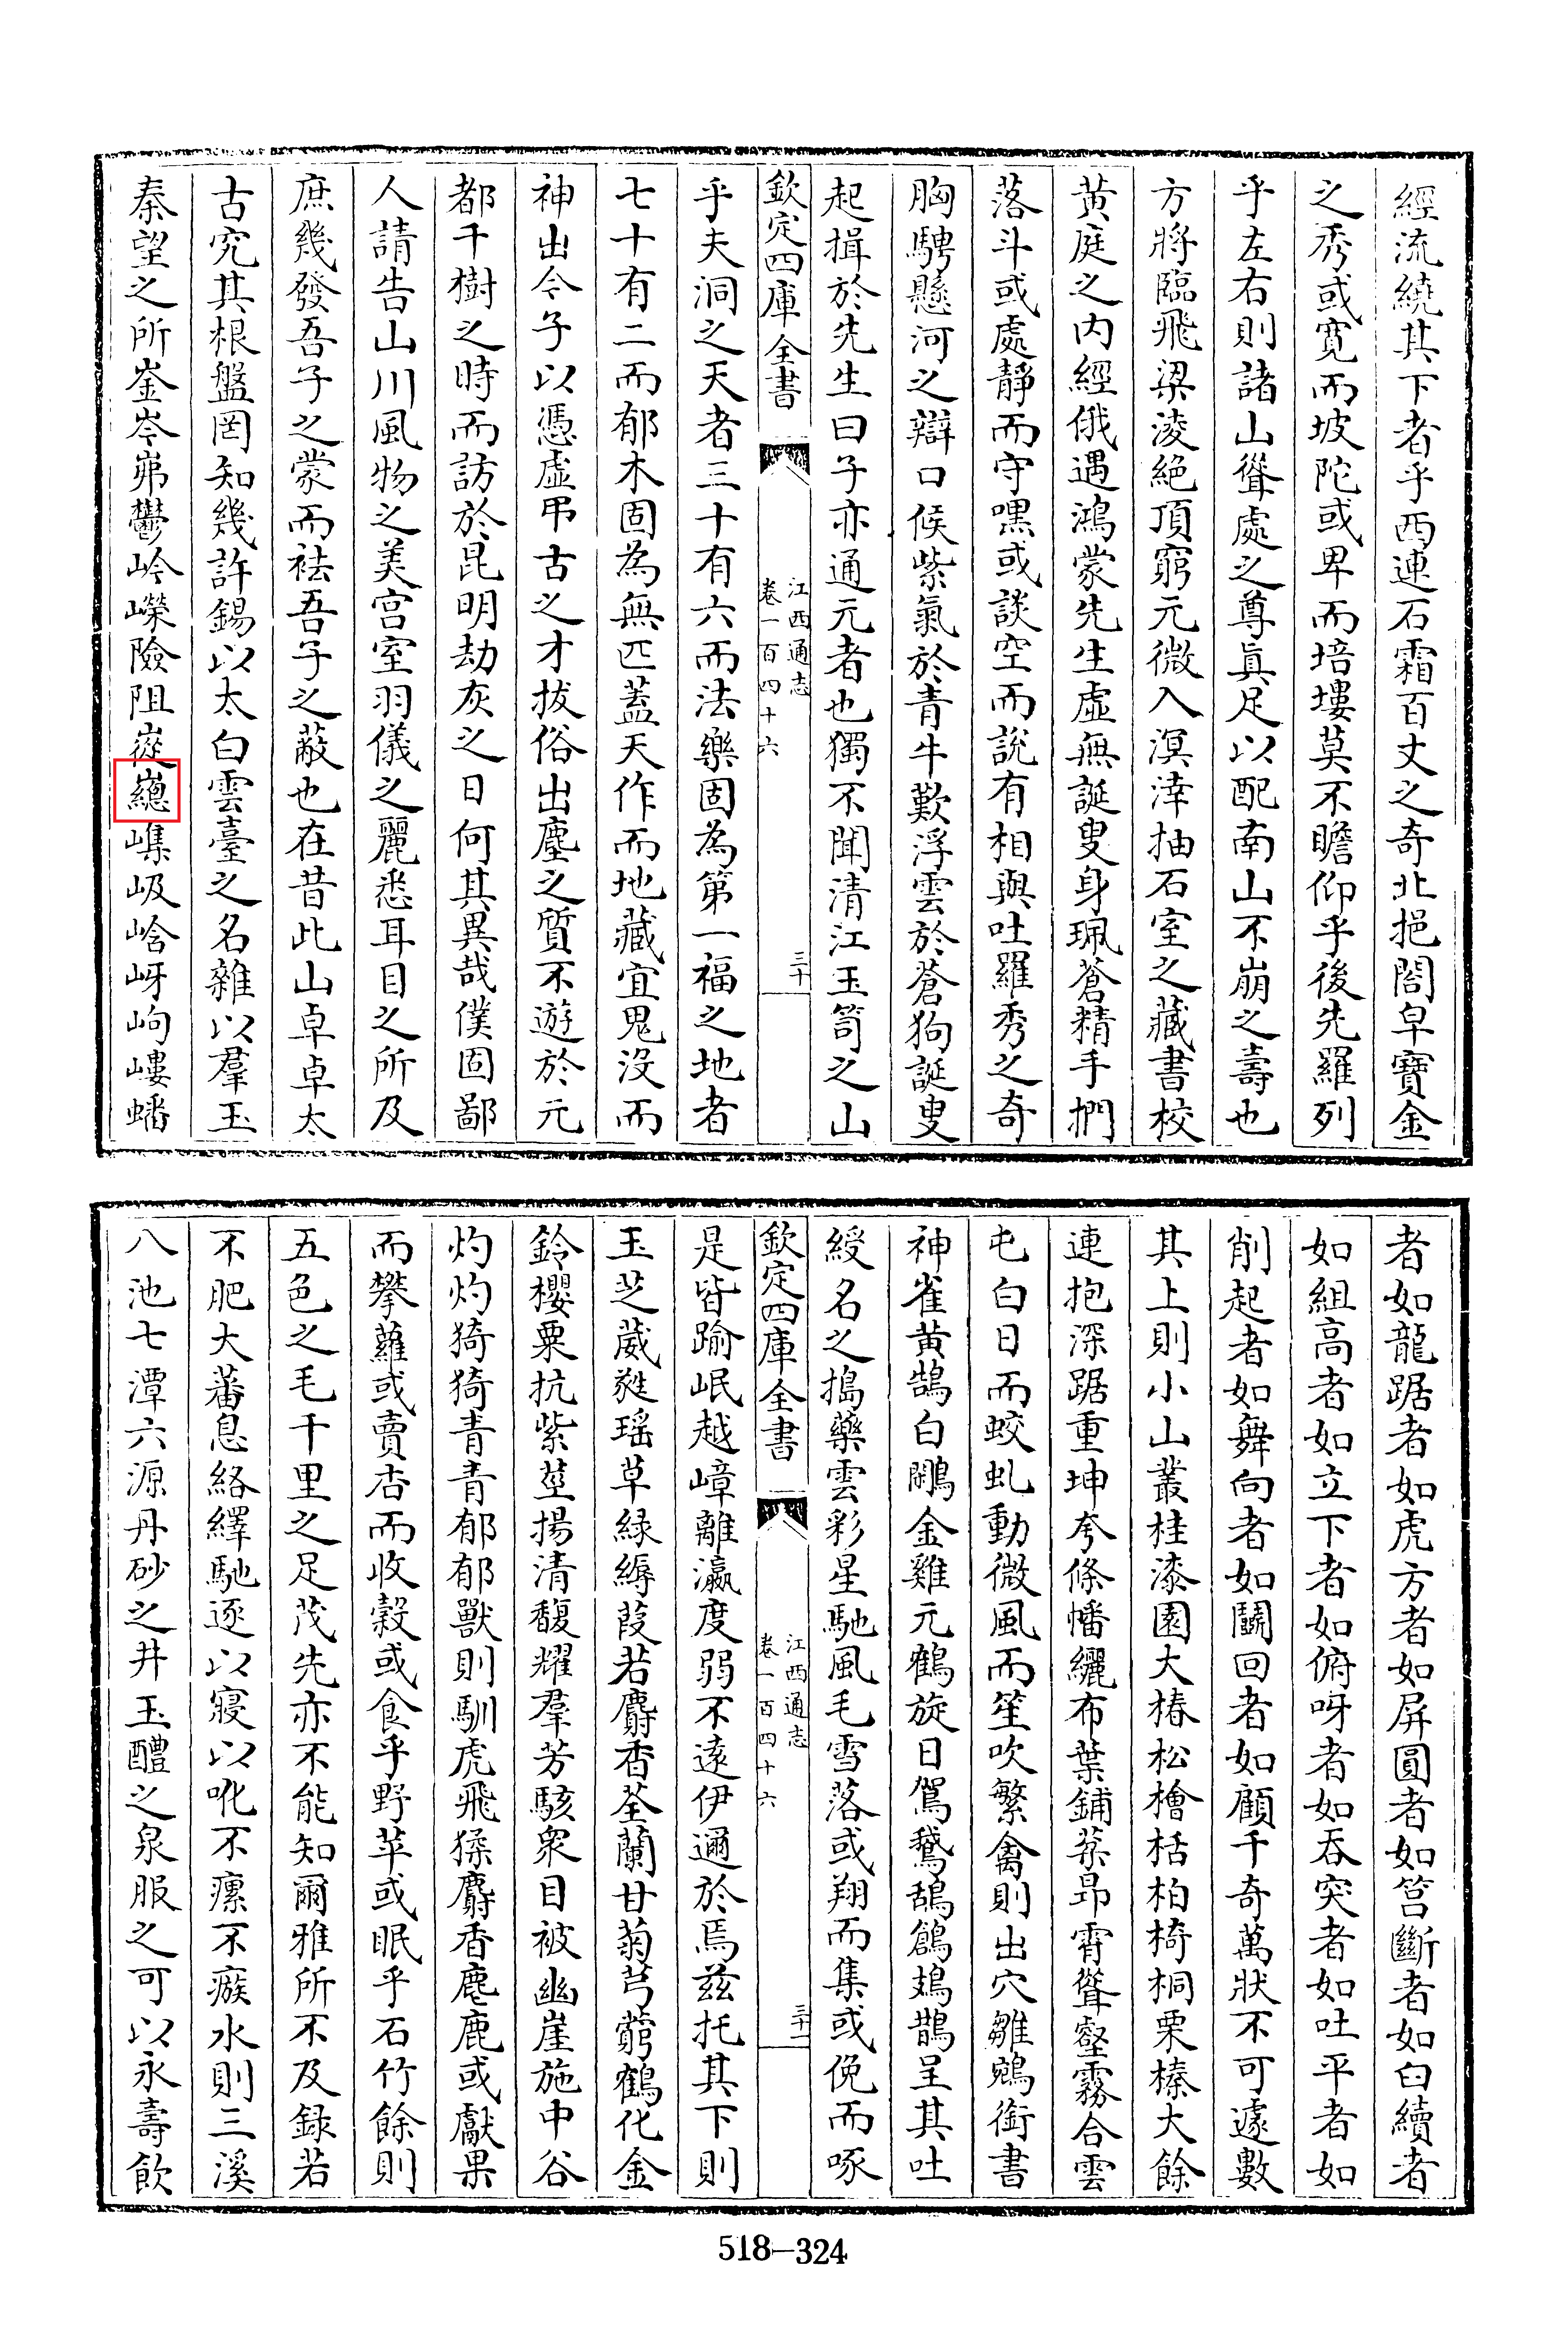 經流繞其下者乎西連石霜百丈之奇北挹閤皁寶金
之秀或寛而坡陀或卑而培塿莫不瞻仰乎後先羅列
乎左右則諸山聳處之尊眞足以配南山不崩之壽也
方將臨飛梁淩絶頂窮元微入溟涬抽石室之藏書校
黄庭之内經俄遇鴻蒙先生虛無誕叟身珮蒼精手捫
落斗或處靜而守嘿或談空而說有相與吐羅秀之奇
胸騁懸河之辯口候紫氣於青牛歎浮雲於蒼狗誕叟
起揖於先生曰子亦通元者也獨不聞清江玉笥之山
欽定四庫全書
江西通志
卷一百四十六
三十
乎夫洞之天者三十有六而法樂固為第一福之地者
七十有二而郁木固為無匹蓋天作而地藏宜鬼沒而
神出今子以憑虛弔古之才拔俗出塵之質不遊於元
都千樹之時而訪於昆明劫灰之日何其異哉僕固鄙
人請告山川風物之美宮室羽儀之麗悉耳目之所及
庶幾發吾子之蒙而袪吾子之蔽也在昔此山卓卓太
古究其根盤罔知幾許錫以太白雲臺之名雜以羣玉
秦望之所崟岑岪鬱岭嶸險阻嵸嶕岋峆岈岣嶁蟠
者如龍踞者如虎方者如屏圓者如笤斷者如臼續者
如組高者如立下者如俯呀者如吞突者如吐平者如
削起者如舞向者如鬭回者如顧千奇萬狀不可遽數
其上則小山叢桂漆園大椿松檜栝柏椅桐栗榛大餘
連抱深踞重坤夸條幡纚布葉鋪棻昂霄聳壑霧合雲
屯白日而蛟虬動微風而笙吹繁禽則出穴雛鵷銜書
神雀黄鵠白鷴金雞元鶴旋日鴐鵝鴰鶬鴂鵲呈其吐
綬名之搗藥雲彩星馳風毛雪落或翔而集或俛而啄
欽定四庫全書
江西通志
卷一百四十六
三十一
是皆踰岷越嶂離瀛度弱不遠伊邇於焉兹托其下則
玉芝葳蕤瑶草緑縟葭若麝香荃蘭甘菊芎藭鶴化金
鈴櫻粟抗紫莖揚清馥耀羣芳駭衆目被幽崖施中谷
灼灼猗猗青青郁郁獸則馴虎飛猱麝香麀鹿或獻果
而攀蘿或賣杏而收穀或食乎野苹或眠乎石竹餘則
五色之毛千里之足茂先亦不能知爾雅所不及録若
不肥大蕃息絡繹馳逐以寢以吪不瘰不瘯水則三溪
八池七潭六源丹砂之井玉醴之泉服之可以永壽飲
518—324